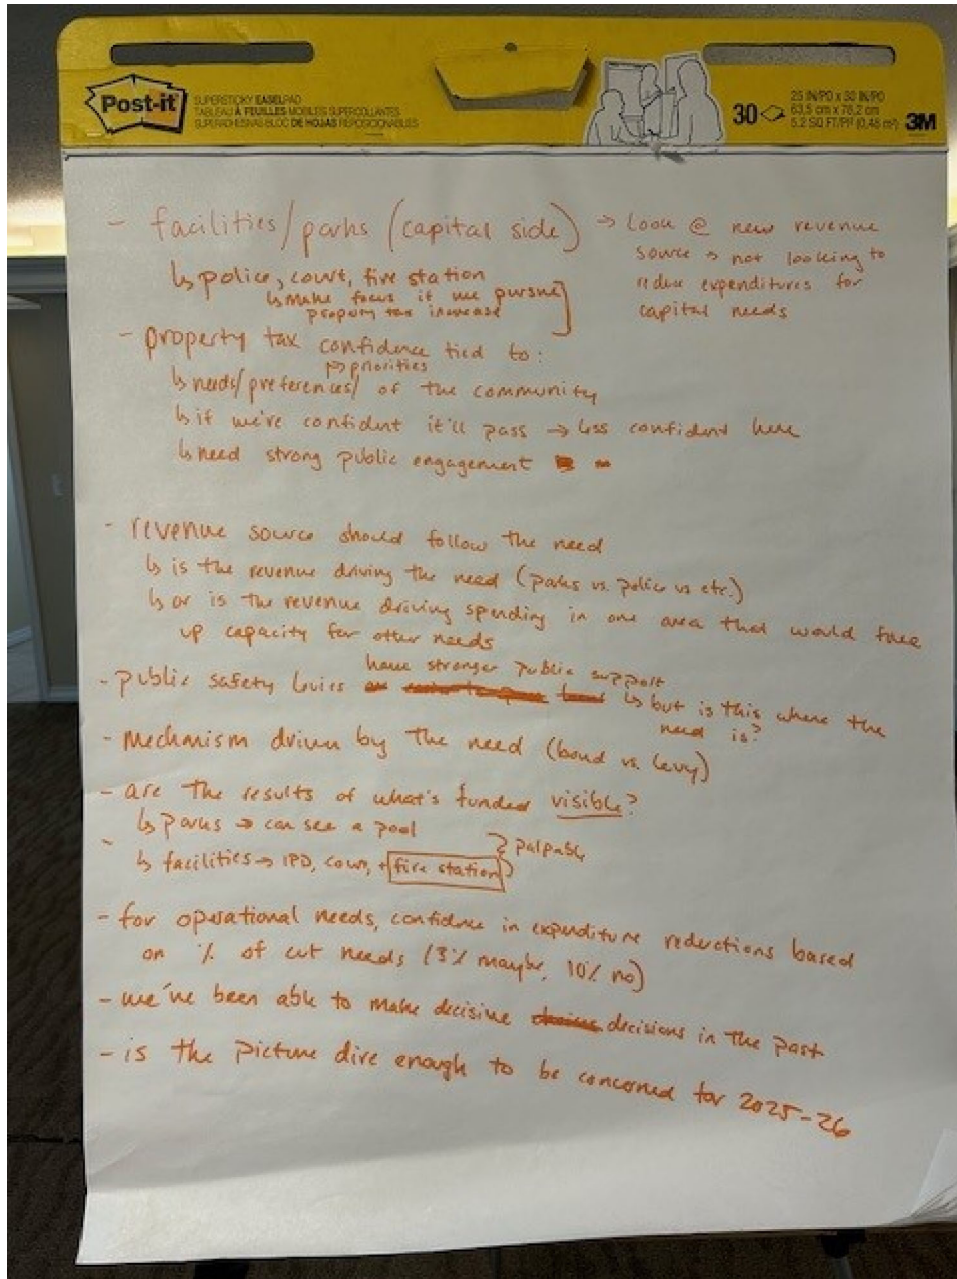 Post-it
SUPERSTICKY EASEL PAD
TABLEAU À FEUILLES MOBILES SUPERCOLLANTES
SUPERADHESIVAS-BLOC DE HOJAS REPOSICIONABLES
30
25 IN/PO x 30 IN/PO
63,5 cm x 76,2 cm
5.2 SQ FT/PI² (0,48 m²)
3M
- facilities/parks (capital side) → Look @ new revenue
source ↳ not looking to
reduce expenditures for
capital needs
↳ police, court, fire station
↳ make focus if we pursue
property tax increase
- property tax confidence tied to:
↳ priorities
↳ needs/preferences/ of the community
↳ if we're confident it'll pass → less confident here
↳ need strong public engagement
- revenue source should follow the need
↳ is the revenue driving the need (parks vs. police vs etc.)
↳ or is the revenue driving spending in one area that would free
up capacity for other needs
have stronger public support
- public safety levies ↳ but is this where the
need is?
- Mechanism driven by the need (bond vs. levy)
- are the results of what's funded visible?
↳ parks → can see a pool
- palpable
↳ facilities → IPD, court, + fire station
- for operational needs, confidence in expenditure reductions based
on % of cut needs (3% maybe, 10% no)
- we've been able to make decisive decisions in the past
- is the picture dire enough to be concerned for 2025-26